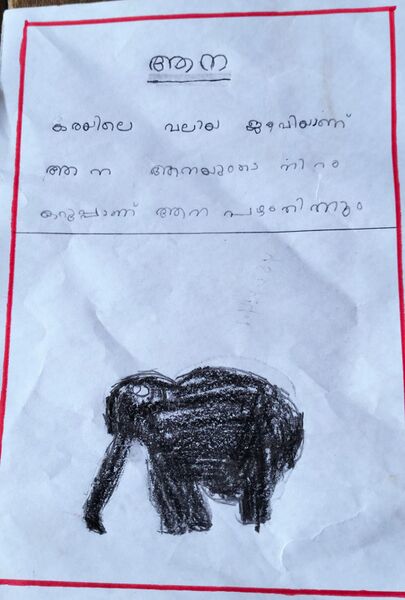 ആന
കരയിലെ വലിയ ജീവിയാണ്
ആന ആനയുടെ നിറം
കറുപ്പാണ് ആന പഴംതിന്നും